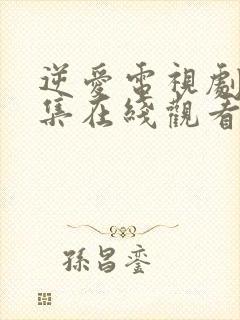 逆愛電視劇
集在綫觀看
孫昌鑾